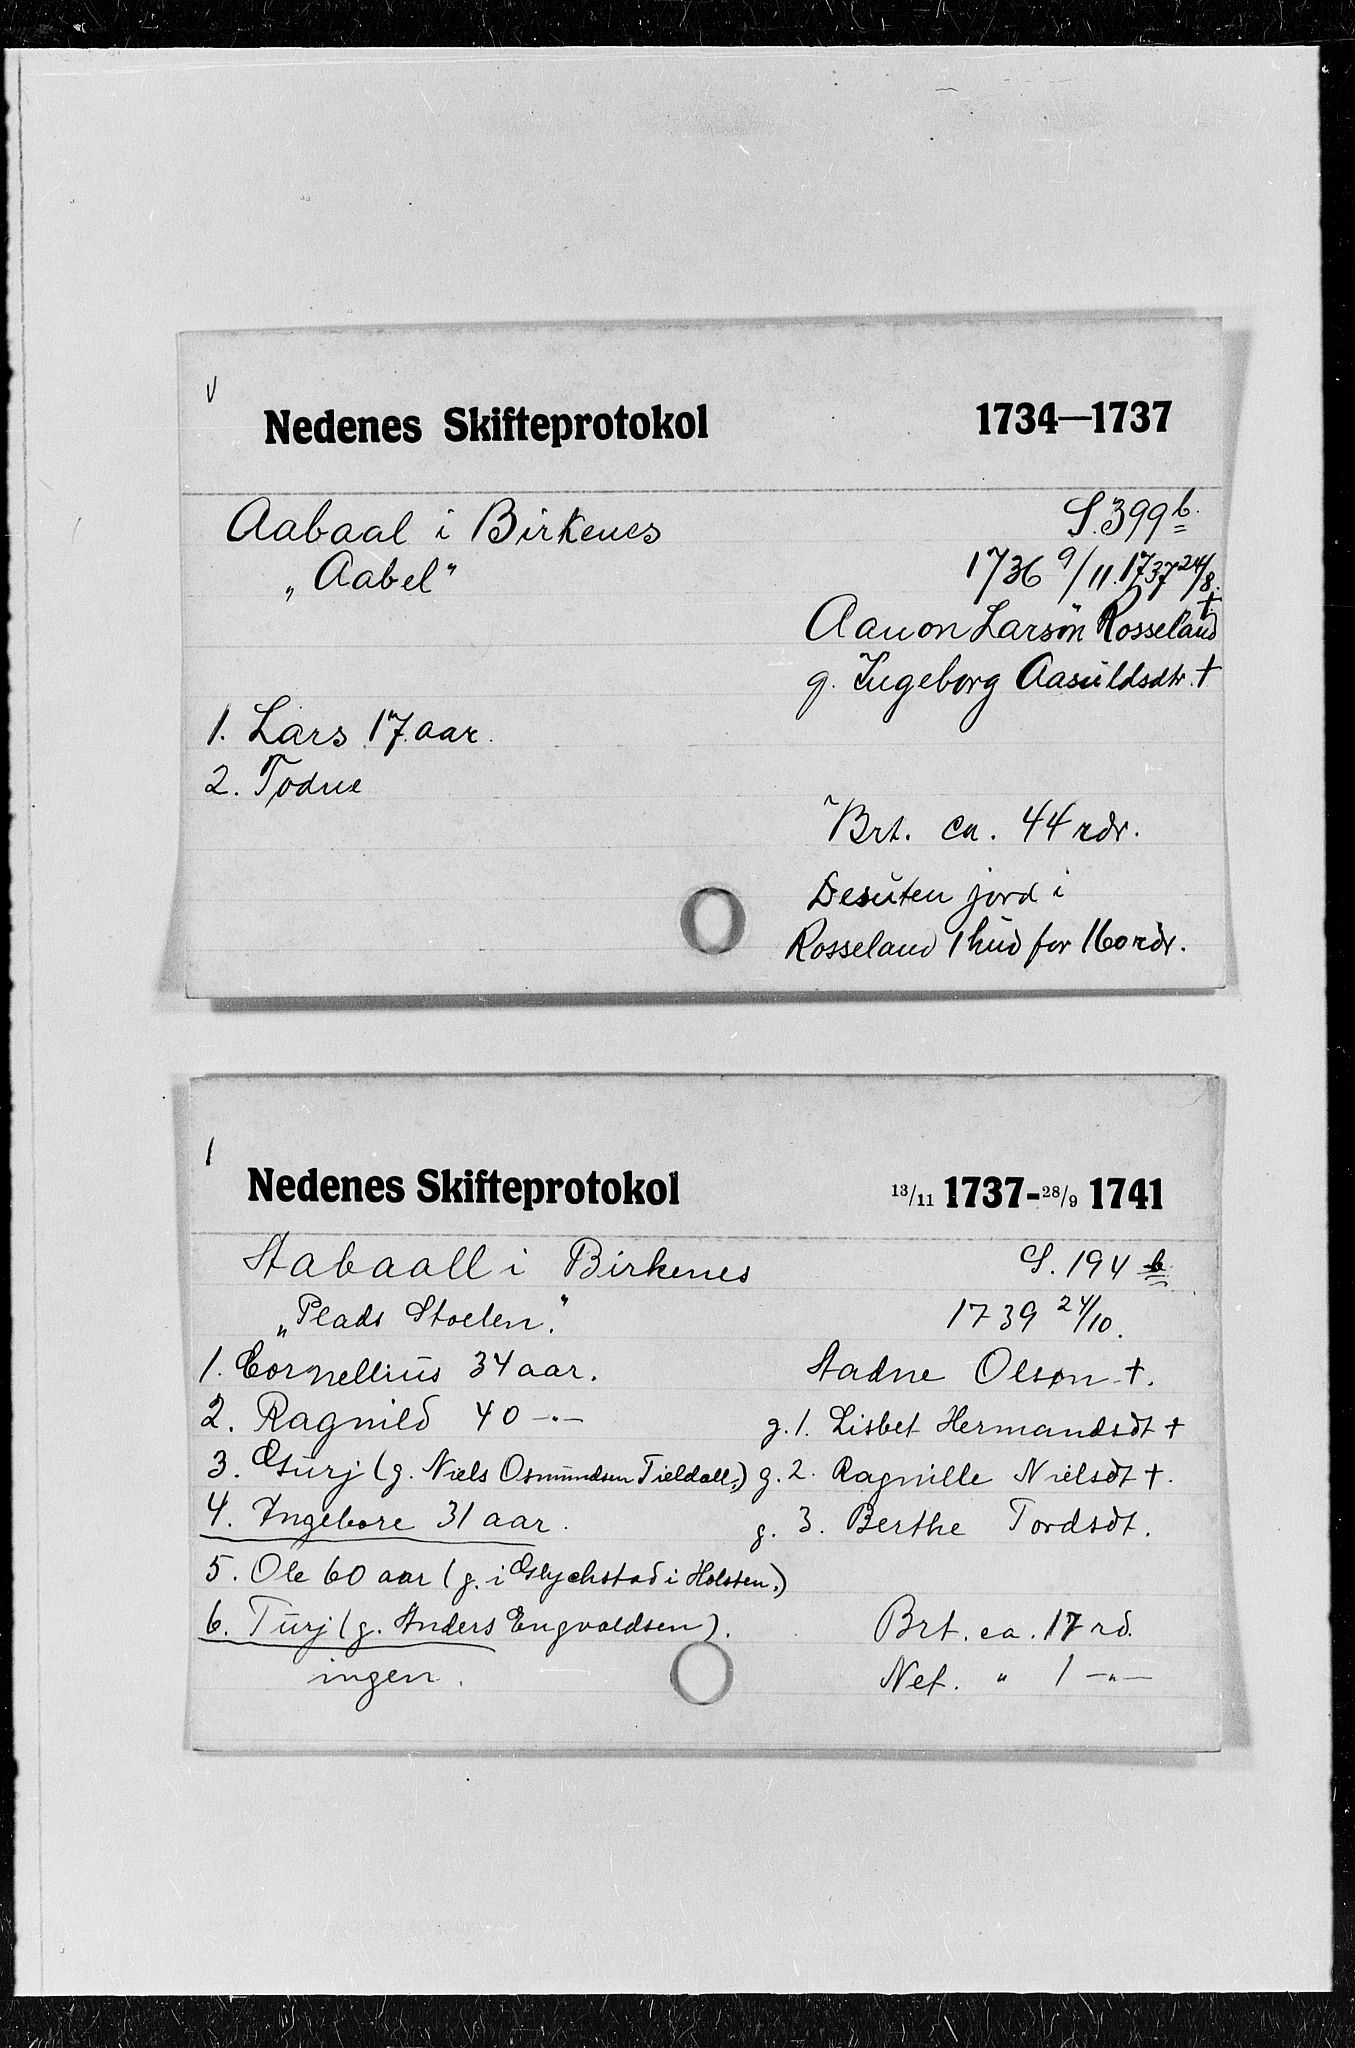 V
Nedenes Skifteprotokol 1734—1737
Aabaal i Birkenes S. 399 b.
„Aabel" 1736 9/11. 1737 24/8.
Aanon Larsøn Rosseland †
g. Ingeborg Aasuldsdtr. †
1. Lars 17 aar.
2. Todne
Brt. ca. 44 rdr.
Desuten jord i
Rosseland 1 hud for 160 rdr.
1
Nedenes Skifteprotokol 13/11 1737-28/9 1741
Aabaall i Birkenes S. 194 b
„Plads Stoelen." 1739 24/10.
1. Cornellius 34 aar. Aadne Olsøn †.
2. Ragnild 40 -"- g. 1. Lisbet Hermandsdt †
3. Gurj (g. Niels Osmundsen Tieldall.) g. 2. Ragnille Nielsdt †.
4. Ingebore 31 aar. g. 3. Berthe Tordsdt.
5. Ole 60 aar (g. i Glychstad i Holsten.)
6. Turj (g. Anders Engvoldsen). Brt. ca. 17 rd.
ingen. Net. " 1 -"-